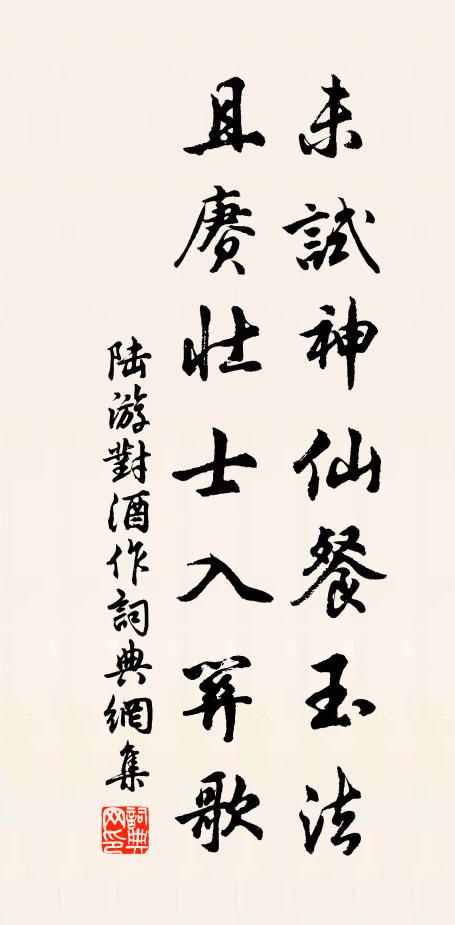 未試神仙餐玉法
且賡壮士入關歌
陆游對酒作詞典網集
詞典网印